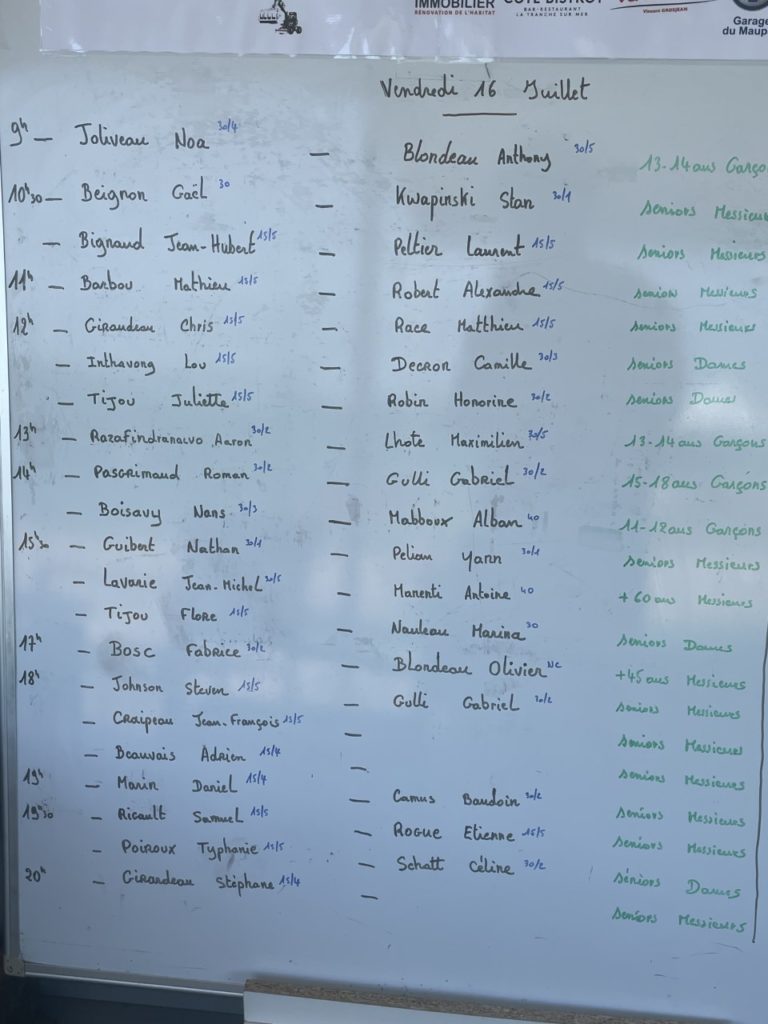 IMMOBILIER
RÉNOVATION DE L'HABITAT
CÔTÉ BISTROT
BAR-RESTAURANT
LA TRANCHE SUR MER
Vincent GROSJEAN
Garage
du Maup
Vendredi 16 Juillet
9h — Joliveau Noa 30/4 — Blondeau Anthony 30/5 13-14 ans Garço
10h30 — Beignon Gaël 30 — Kwapinski Stan 30/1 Seniors Messieurs
— Bignaud Jean-Hubert 15/5 — Peltier Laurent 15/5 Seniors Messieurs
11h — Barbou Mathieu 15/5 — Robert Alexandre 15/5 Seniors Messieurs
12h — Giraudeau Chris 15/5 — Race Matthieu 15/5 Seniors Messieurs
— Inthavong Lou 15/5 — Decron Camille 30/3 Seniors Dames
— Tijou Juliette 15/5 — Robin Honorine 30/2 Seniors Dames
13h — Razafindranaivo Aaron 30/2 — Lhote Maximilien 30/5 13-14 ans Garçons
14h — Pasgrimaud Roman 30/2 — Gulli Gabriel 30/2 15-18 ans Garçons
— Boisavy Nans 30/3 — Mabboux Alban 40 11-12 ans Garçons
15h30 — Guibert Nathan 30/1 — Pelian Yann 30/1 Seniors Messieurs
— Lavarie Jean-Michel 30/5 — Manenti Antoine 40 +60 ans Messieurs
— Tijou Flore 15/5 — Nauleau Marina 30 Seniors Dames
17h — Bosc Fabrice 30/2 — Blondeau Olivier NC +45 ans Messieurs
18h — Johnson Steven 15/5 — Gulli Gabriel 30/2 Seniors Messieurs
— Craipeau Jean-François 15/5 — Seniors Messieurs
— Beauvais Adrien 15/4 — Seniors Messieurs
19h — Marin Daniel 15/4 — Camus Baudoin 30/2 Seniors Messieurs
19h30 — Ricault Samuel 15/5 — Rogue Etienne 15/5 Seniors Messieurs
— Poiroux Typhanie 15/5 — Schatt Céline 30/2 Séniors Dames
20h — Girardeau Stéphane 15/4 — Seniors Messieurs